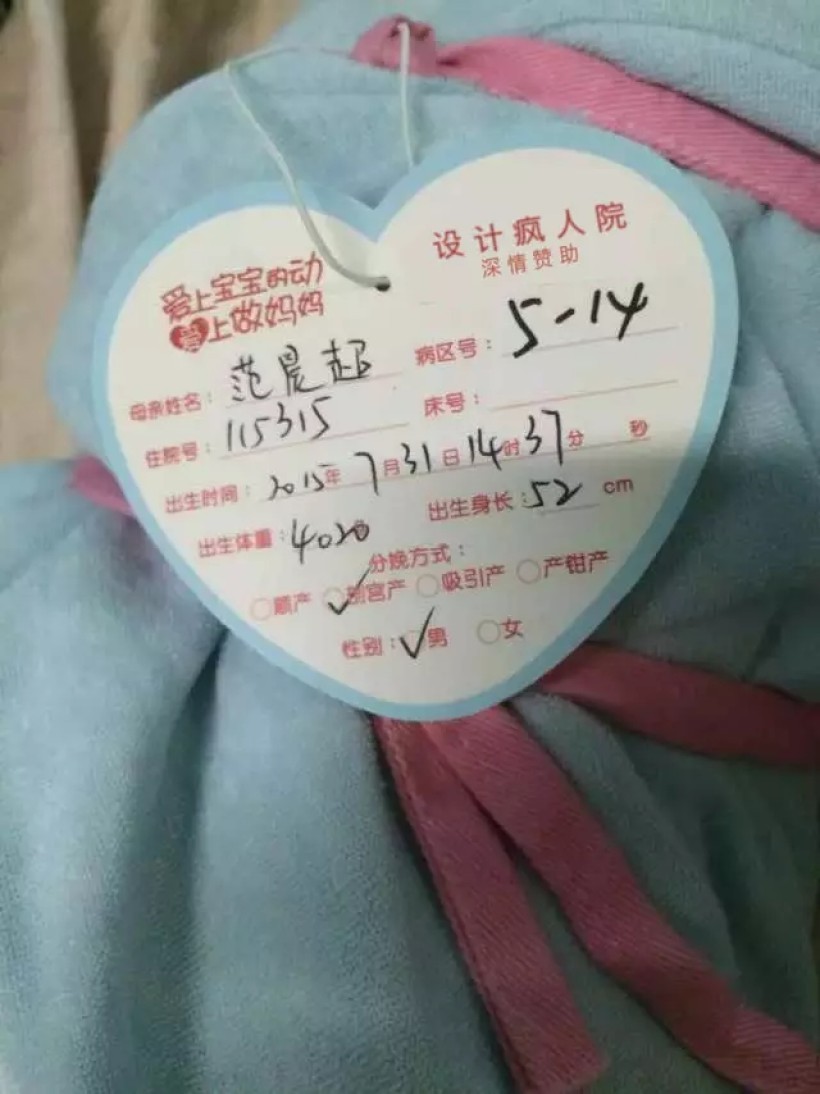 爱上宝宝的动
爱上做妈妈
设计疯人院
深情赞助
母亲姓名：范晨超
病区号：5-14
住院号：115315
床号：
出生时间：2015年7月31日14时37分 秒
出生体重：4020
出生身长：52 cm
分娩方式：
○顺产 ✓剖宫产 ○吸引产 ○产钳产
性别：✓男 ○女